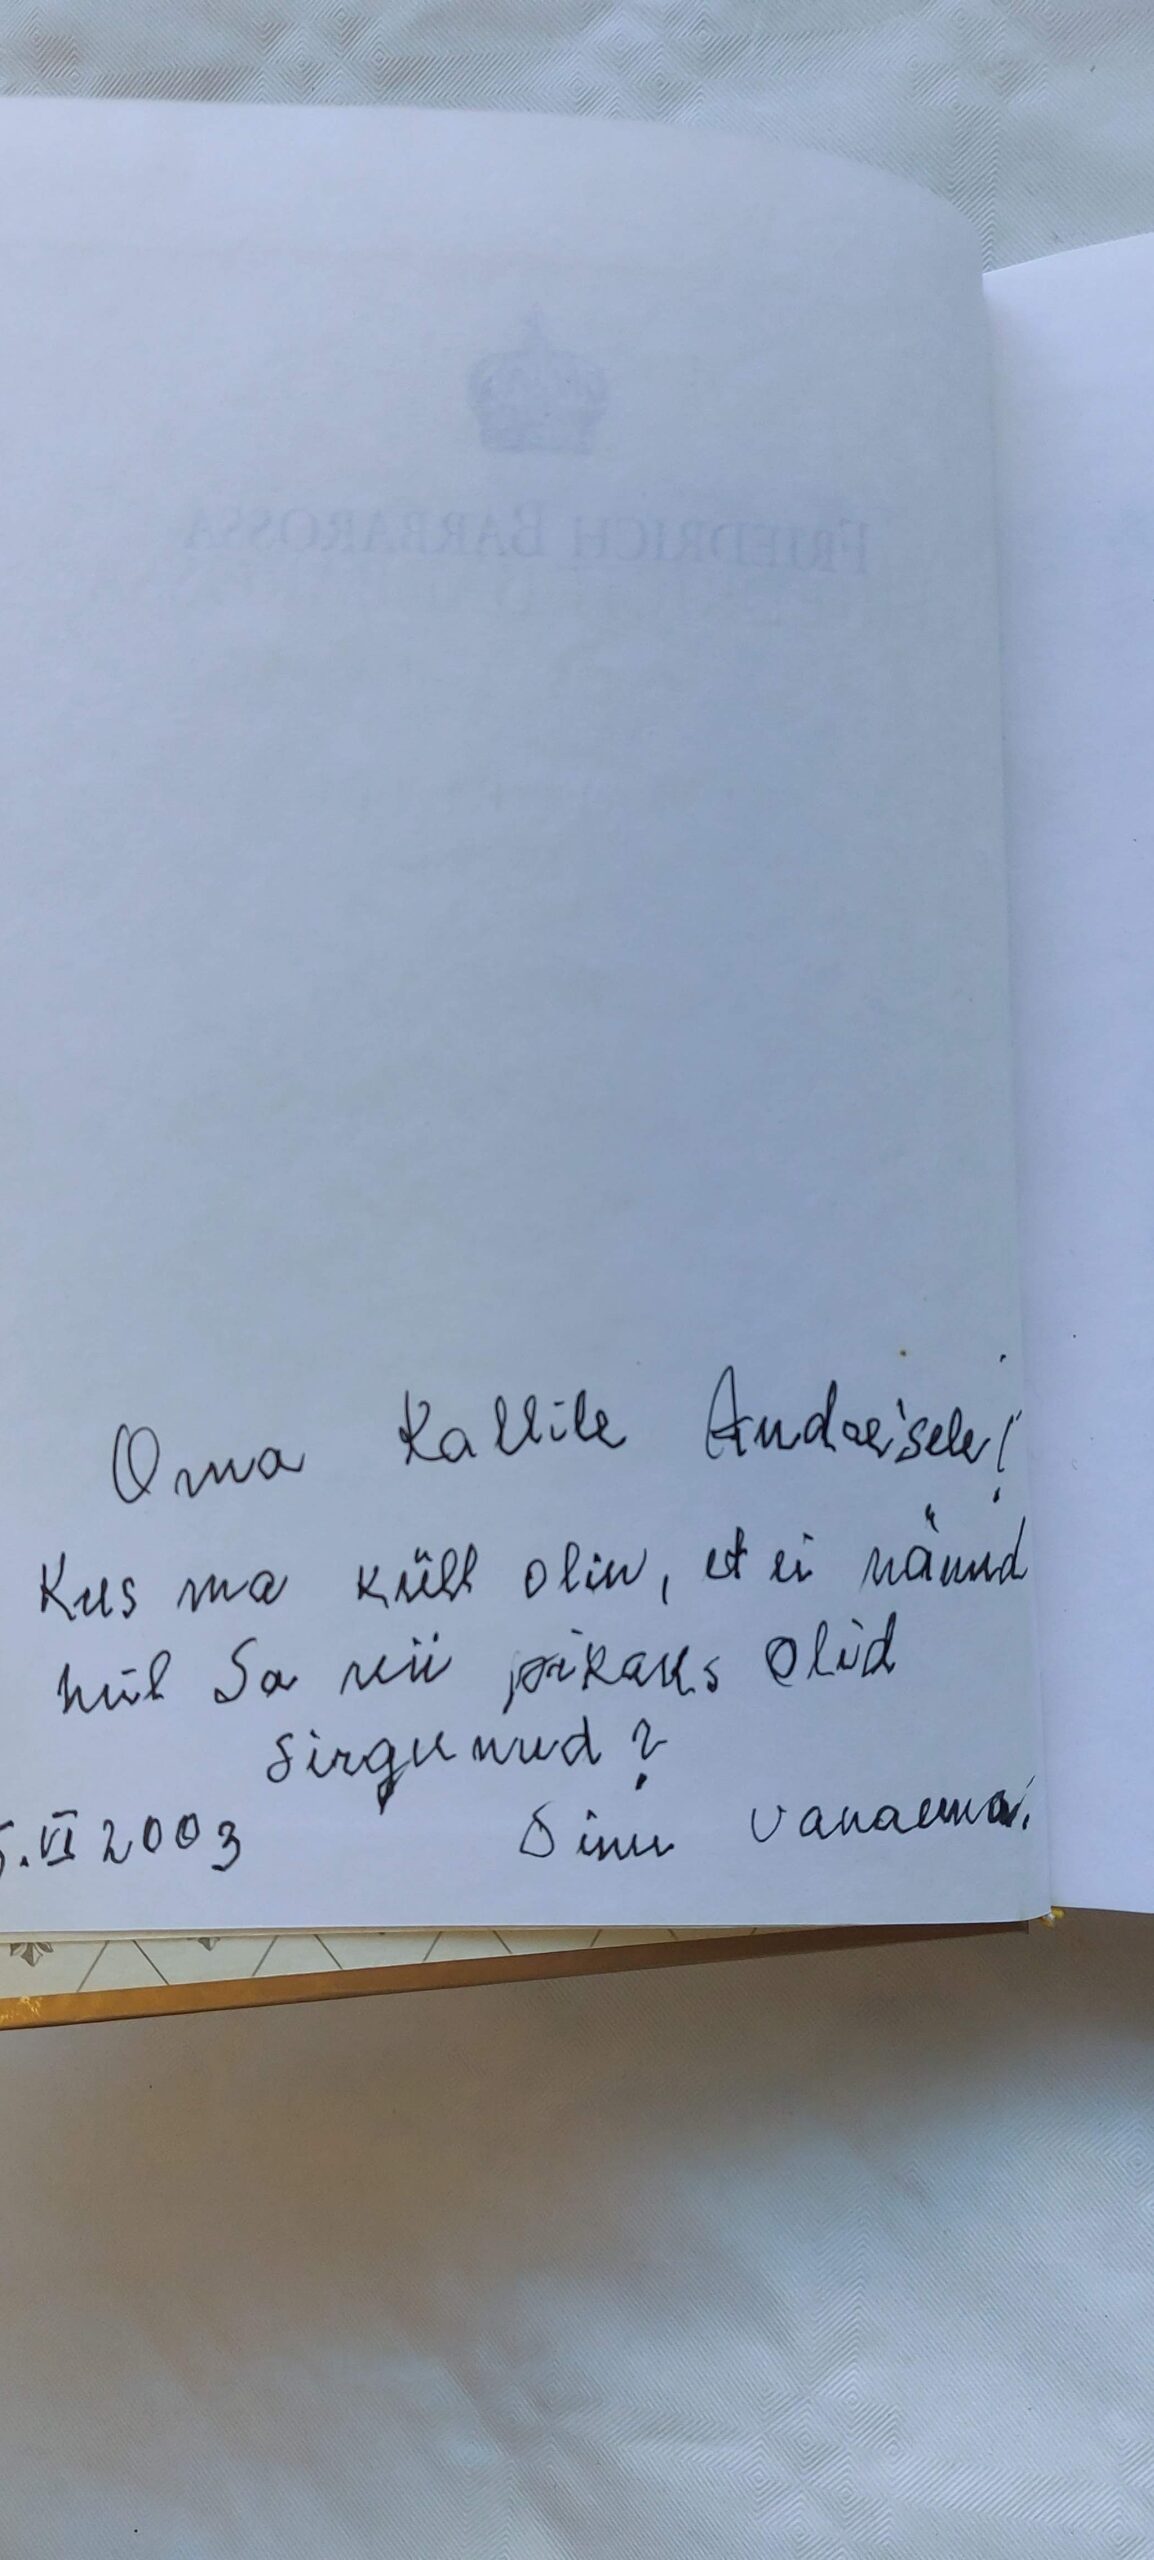 FRIEDRICH BARBAROSSA
Oma Kallile Andreisele!
Kus ma küll olin, et ei näinud
kuil Sa nii pikaks olid
sirgunud?
5.VI 2003 Sinu vanaema.